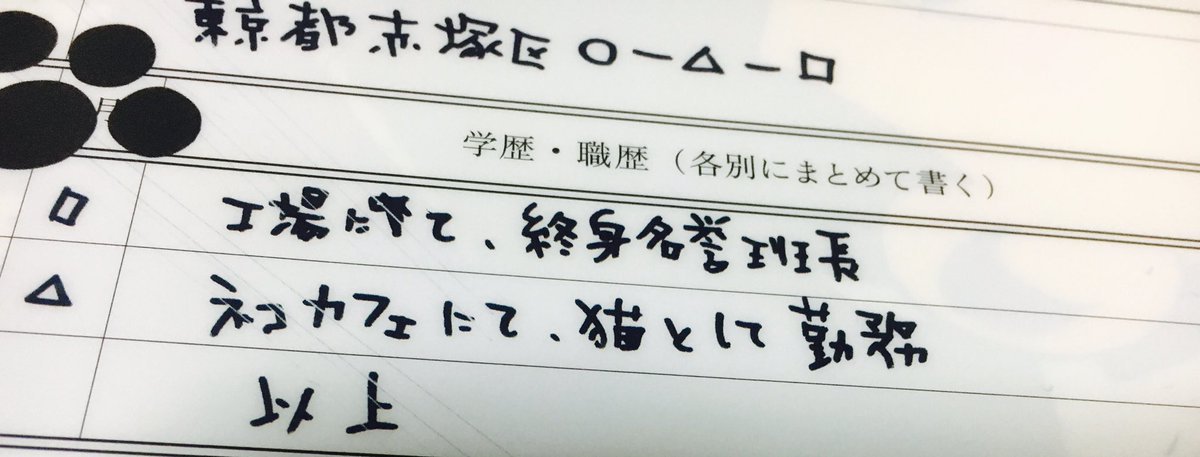 東京都赤塚区○ー△ー□
学歴・職歴（各別にまとめて書く）
□ 工場にて、終身名誉班長
△ ネコカフェにて、猫として勤務
以上